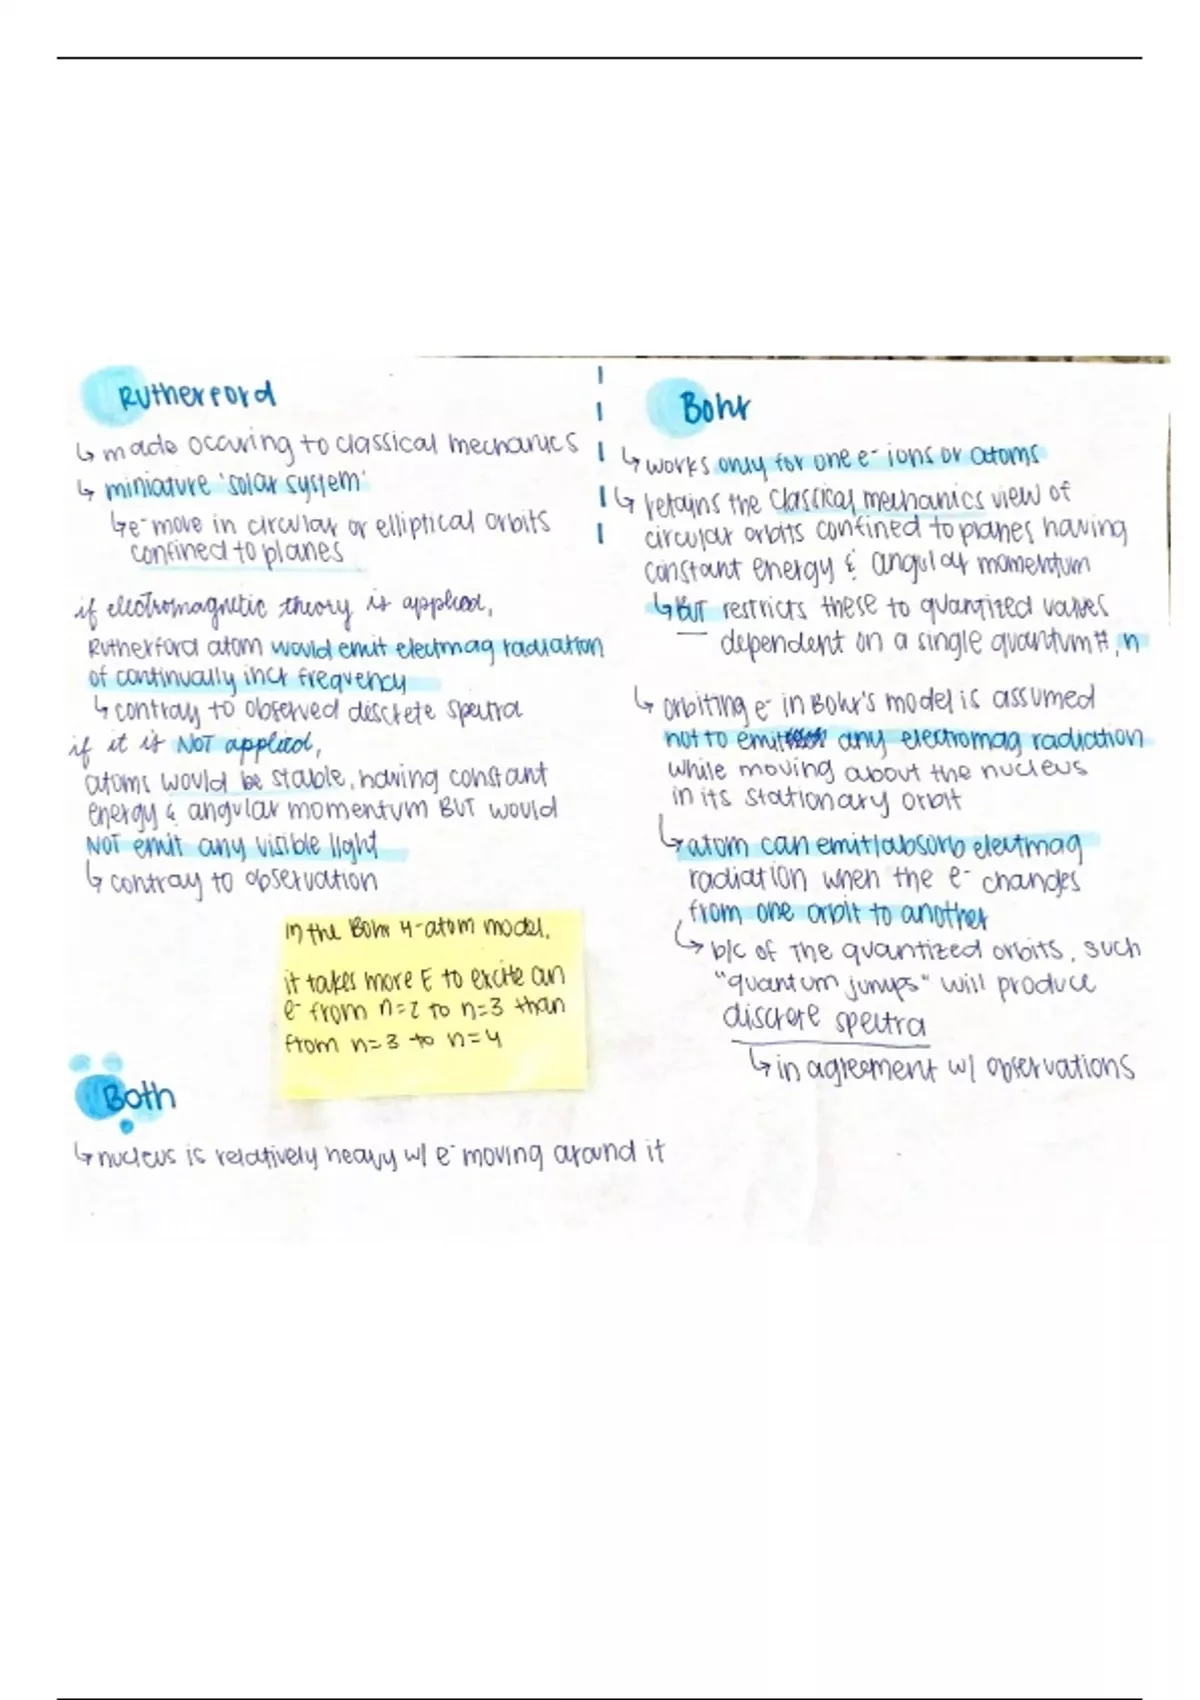 Rutherford
↳ made occuring to classical mechanics
↳ miniature 'solar system'
↳ e⁻ move in circular or elliptical orbits
confined to planes
if electromagnetic theory is applied,
Rutherford atom would emit electmag radiation
of continually incr frequency
↳ contray to observed discrete spectra
if it is NOT applied,
atoms would be stable, having constant
energy & angular momentum BUT would
NOT emit any visible light
↳ contray to observation
in the Bohr H-atom model,
it takes more E to excite an
e⁻ from n=2 to n=3 than
from n=3 to n=4
Both
↳ nucleus is relatively heavy w/ e⁻ moving around it
Bohr
↳ works only for one e⁻ ions or atoms
↳ retains the classical mechanics view of
circular orbits confined to planes having
constant energy & angular momentum
↳ BUT restricts these to quantized values
dependent on a single quantum #, n
↳ orbiting e⁻ in Bohr's model is assumed
not to emit any electromag radiation
while moving about the nucleus
in its stationary orbit
↳ atom can emit/absorb electmag
radiation when the e⁻ changes
from one orbit to another
↳ b/c of the quantized orbits, such
"quantum jumps" will produce
discrete spectra
↳ in agreement w/ observations